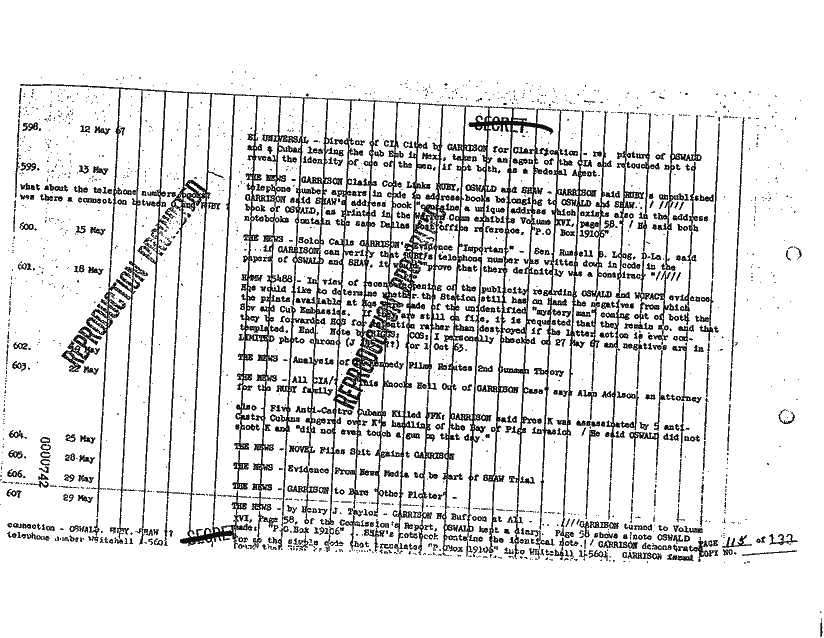 SECRET
598. 12 May 67
EL UNIVERSAL - Director of CIA Cited by GARRISON for Clarification - re; picture of OSWALD
and a Cuban leaving the Cub Emb in Mexi, taken by an agent of the CIA and retouched not to
reveal the identity of one of the men, if not both, as a Federal Agent.
599. 13 May
THE NEWS - GARRISON Claims Code Links RUBY, OSWALD and SHAW - GARRISON said RUBY's unpublished
telephone number appears in code in address-books belonging to OSWALD and SHAW.. / /////
GARRISON said SHAW's address book contains a unique address which exists also in the address
book of OSWALD, as printed in the Comm exhibits Volume XVI, page 58." / He said both
notebooks contain the same Dallas office reference, "P.O Box 19106".
what about the telephone numbers
was there a connection between RUBY ?
600. 15 May
THE NEWS - Solon Calls GARRISON's Evidence "Important" - Sen. Russell B. Long, D-La., said
...if GARRISON can verify that RUBY's telephone number was written down in code in the
papers of OSWALD and SHAW, it prove that there definitely was a conspiracy "/////
601. 18 May
HMMW 15488 - In view of recent opening of the publicity regarding OSWALD and WOFACT evidence,
Hqs would like to determine whether the Station still has on Hand the negatives from which
the prints available at Hqs made of the unidentified "mystery man" coming out of both the
Sov and Cub Embassies. If are still on file, it is requested that they remain so, and that
they be forwarded HQS for retention rather than destroyed if the latter action is ever con-
templated. End. Note by COS: I personally checked on 27 May 67 and negatives are in
LIMITED photo chrono for 1 Oct 63.
602. May
THE NEWS - Analysis of Kennedy Films Refutes 2nd Gunman Theory
603. 22 May
THE NEWS - All CIA/ This Knocks Hell Out of GARRISON Case" says Alan Adelson, an attorney
for the RUBY family
also - Five Anti-Castro Cubans Killed JFK; GARRISON said Pres K was assassinated by 5 anti-
Castro Cubans angered over K's handling of the Bay of Pigs invasion / He said OSWALD did not
shoot K and "did not even touch a gun on that day."
604. 25 May
THE NEWS - NOVEL Files Suit Against GARRISON
605. 28 May
THE NEWS - Evidence From News Media to be Part of SHAW Trial -
606. 29 May
THE NEWS - GARRISON to Bare "Other Plotter" -
607 29 May
THE NEWS - by Henry J. Taylor - GARRISON No Buffoon at All - ...////GARRISON turned to Volume
XVI, Page 58, of the Commission's Report, OSWALD kept a diary. Page 58 shows a note OSWALD
made: "P.O.Box 19106" .. SHAW's notebook contains the identical note./ GARRISON demonstrated
the simple code that translates "P.O.Box 19106" into Whitehall 1-5601. GARRISON
connection - OSWALD. RUBY. SHAW ??
telephone number Whitehall 1-5601
0000742
SECRET
PAGE 115 of 133
COPY NO.
REPRODUCTION PROHIBITED
REPRODUCTION PROHIBITED